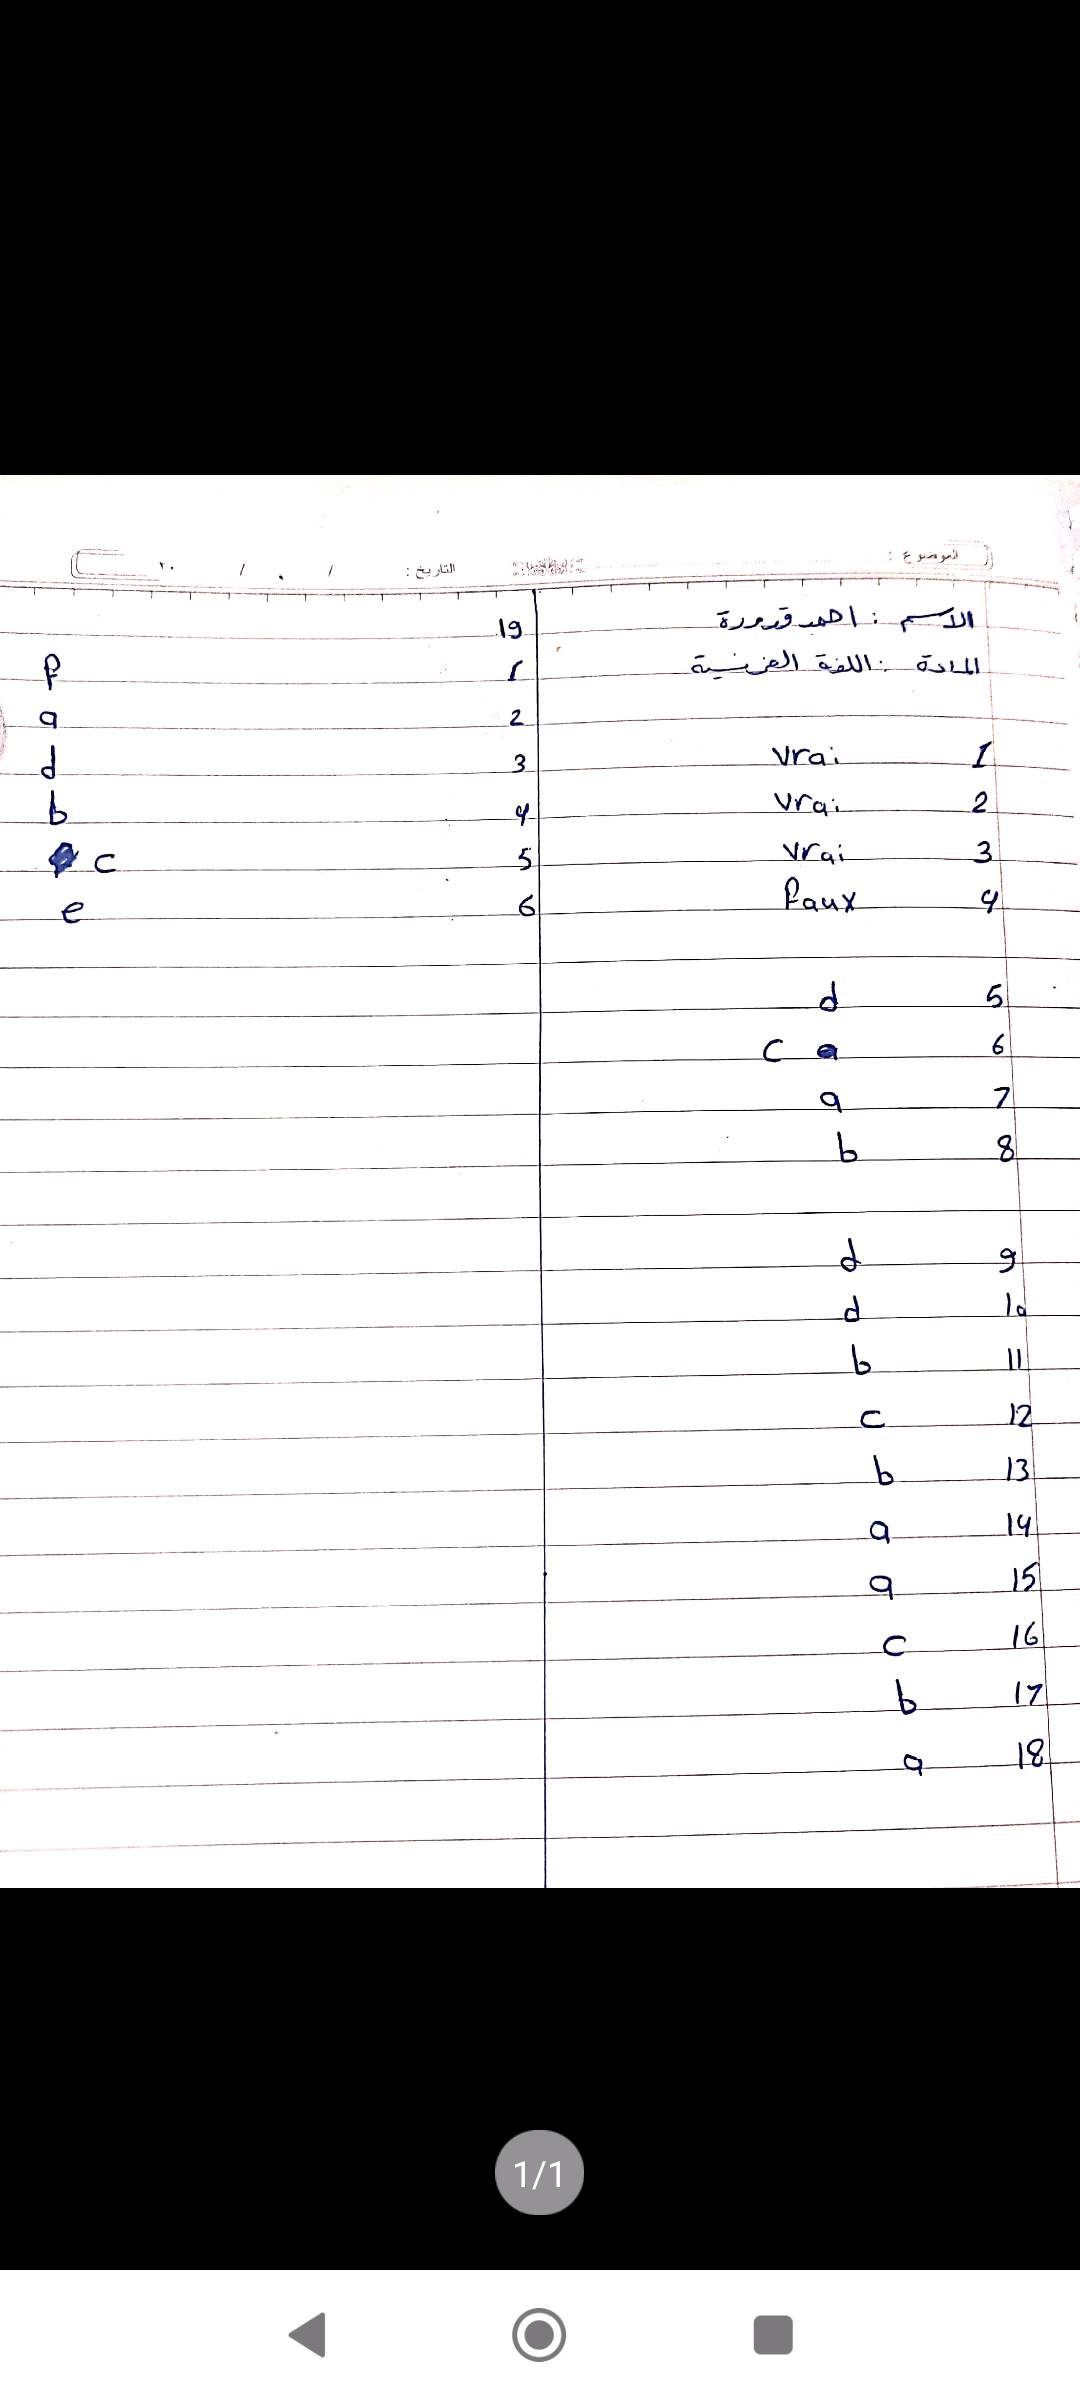 الموضوع :
التاريخ : / / ٢٠
الاسم : احمد قدورة
المادة : اللغة الفرنسية
1 vrai
2 vrai
3 vrai
4 faux
5 d
6 c
7 a
8 b
9 d
10 d
11 b
12 c
13 b
14 a
15 a
16 c
17 b
18 a
19
1 f
2 a
3 d
4 b
5 c
6 e
1/1